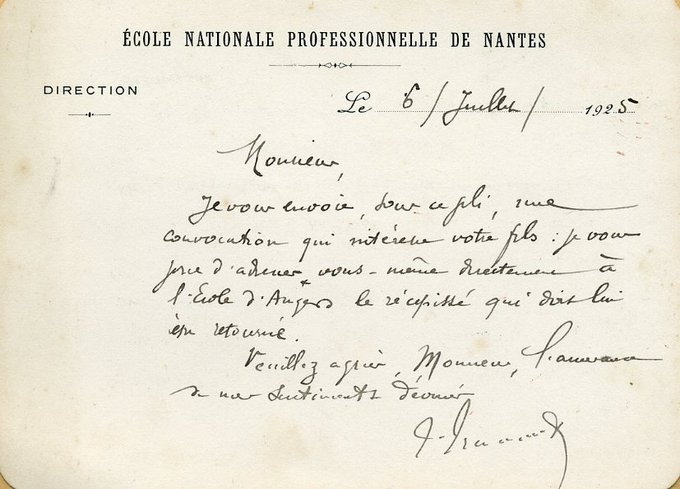 ÉCOLE NATIONALE PROFESSIONNELLE DE NANTES
DIRECTION
Le 6 / Juillet / 1925
Monsieur,
Je vous envoie, sous ce pli, une
convocation qui intéresse votre fils : je vous
prie d'adresser vous-même directement à
l'École d'Angers le récépissé qui doit lui
être retourné.
Veuillez agréer, Monsieur, l'assurance
de mes sentiments dévoués